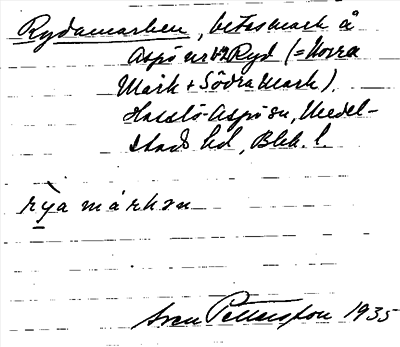 Rydamarken, betesmark å
Aspö nr 1-2 Ryd (= Norra
Mark + Södra Mark).
Hasslö-Aspö sn, Medel-
stads hd, Blek. l.
rya márkən
Sven Pettersson 1935